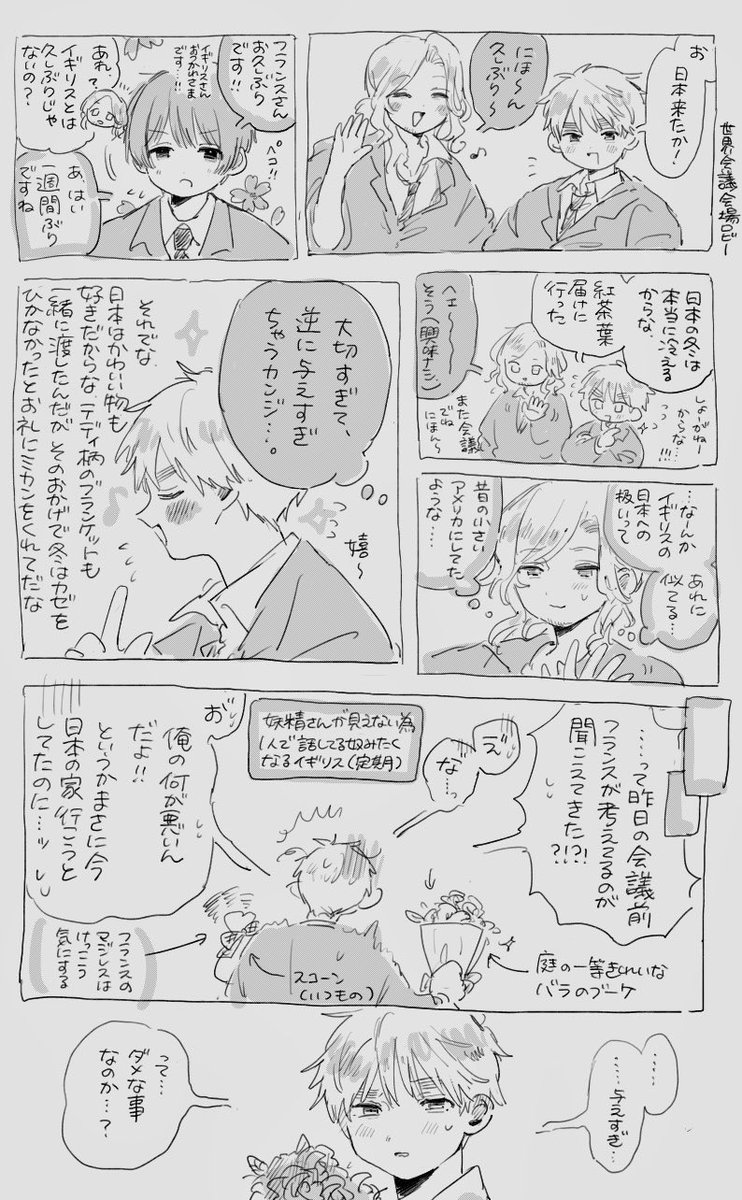 世界会議会場ロビー
お
日本来たか!
にほ〜ん
久しぶり〜
フランスさん
お久しぶり
です!!
イギリスさん
おつかれさま
です…!!
ペコ!!
あれ?
イギリスとは
久しぶりじゃ
ないの?
あ はい
一週間ぶり
ですね
日本の冬は
本当に冷える
からな、
紅茶葉
届けに
行った
しょーがねー
からな…!!!
ヘェ〜〜〜
そう(興味ナシ)
また会議
でね
にほん〜
…なーんか
イギリスの
日本への
扱いって
あれに
似てる…
昔の小さい
アメリカにしてた
ような……
大切すぎて、
逆に与えすぎ
ちゃうカンジ…。
嬉〜
それでな
日本はかわいい物も
好きだからな、テディ柄のブランケットも
一緒に渡したんだが そのおかげで冬はカゼを
ひかなかったとお礼にミカンをくれてだな
……って昨日の会議前
フランスが考えてるのが
聞こえてきた?!?!
え
な…っ
妖精さんが見えない為
1人で話してる奴みたく
なるイギリス(定期)
お
俺の何が悪いん
だよ!!
というかまさに今
日本の家 行こうと
してたのに…ッ
フランスの
マジレスは
けっこう
気にする
スコーン
(いつもの)
庭の一等きれいな
バラのブーケ
……
……与えすぎ…
って…
ダメな事
なのか…?